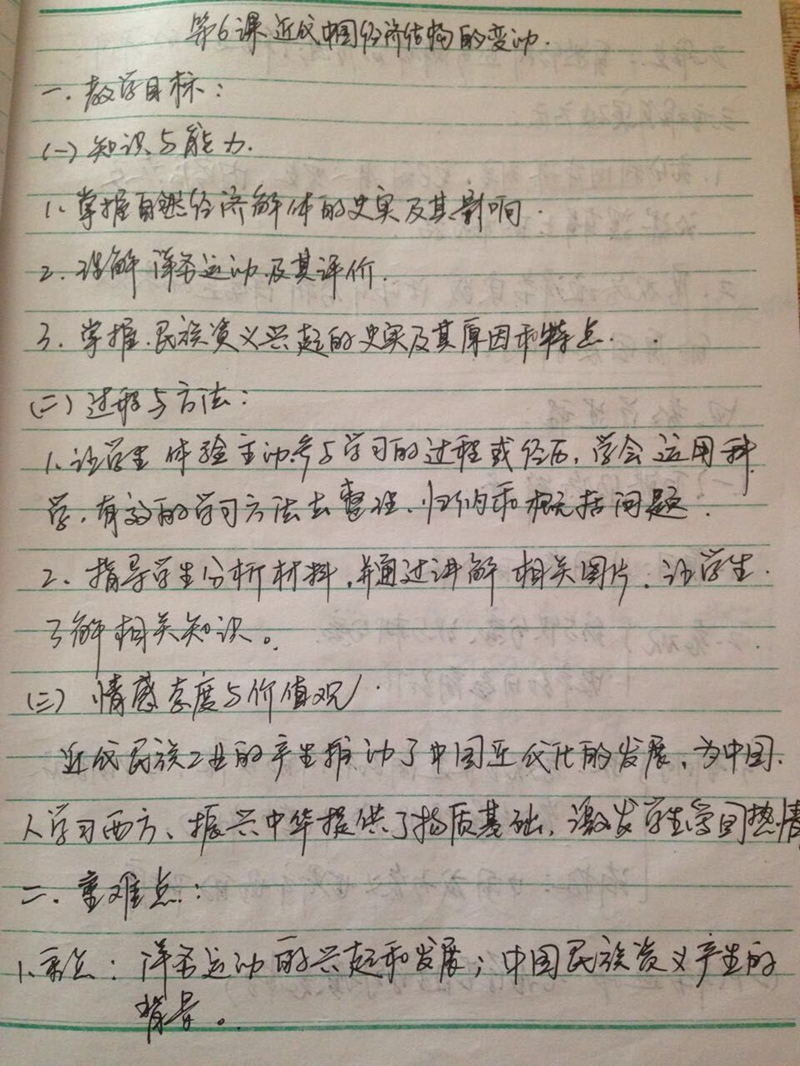 第6课近代中国经济结构的变动.
一.教学目标:
(一)知识与能力.
1、掌握自然经济解体的史实及其影响.
2.理解洋务运动及其评价.
3.掌握.民族资义兴起的史实及其原因和特点.
(二)过程与方法:
1、让学生体验主动参与学习的过程或经历,学会运用科
学,有效的学习方法去整理、归纳和概括问题.
2、指导学生分析材料,并通过讲解相关图片、让学生.
了解相关知识。
(三)情感态度与价值观.
近代民族工业的产生推动了中国近代化的发展,为中国.
人学习西方、振兴中华提供了物质基础,激发学生学习热情
二.重难点:
1、重点:洋务运动的兴起和发展;中国民族资义产生的
背景。